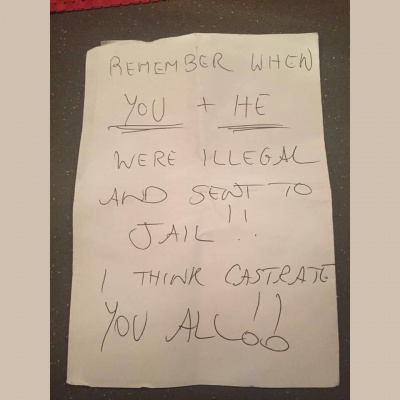 REMEMBER WHEN
YOU + HE
WERE ILLEGAL
AND SENT TO
JAIL !!
I THINK CASTRATE
YOU ALL !!